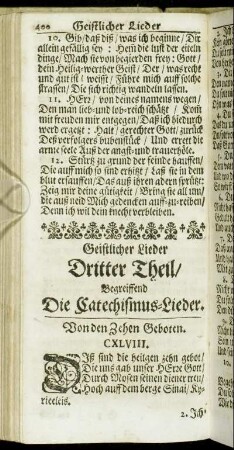 400 Geistlicher Lieder
10. Gib/ daß diß/ was ich beginne/ Dir
allein gefällig sey : Hem̃ die lust der eiteln
dinge/ Mach sie von begierden frey: Gott/
dein Heilig-werther Geist/ Der/ was recht
und gut ist/ weisst/ Führe mich auff solche
strassen/ Die sich richtig wandeln lassen.
11. HErr/ von deines namens wegen/
Den man lieb-und lob-reich schätzt/ Kom̃
mit freuden mir entgegen/ Daß ich hiedurch
werd ergetzt : Halt/ gerechter Gott/ zurück
Deß verfolgers bubenstück/ Und errett die
arme seele Auß der angst-und traurerhöle.
12. Stürtz zu grund der feinde hauffen/
Die auff mich so sind erhitzt/ Laß sie in dem
blut ersauffen/ Das auß ihren adern sprützt:
Zeig mir deine gütigkeit/ Bring sie all um/
die auß neid Mich gedencken auff-zu-reiben/
Denn ich wil dein knecht verbleiben.
Geistlicher Lieder
Dritter Theil/
Begreiffend
Die Catechismus-Lieder.
Von den Zehen Geboten.
CXLVIII.
Diß sind die heilgen zehn gebot/
Die uns gab unser HErre Gott/
Durch Mosen seinen diener treu/
Hoch auff dem berge Sinai/ Ky-
rieeleis.
2. Ich